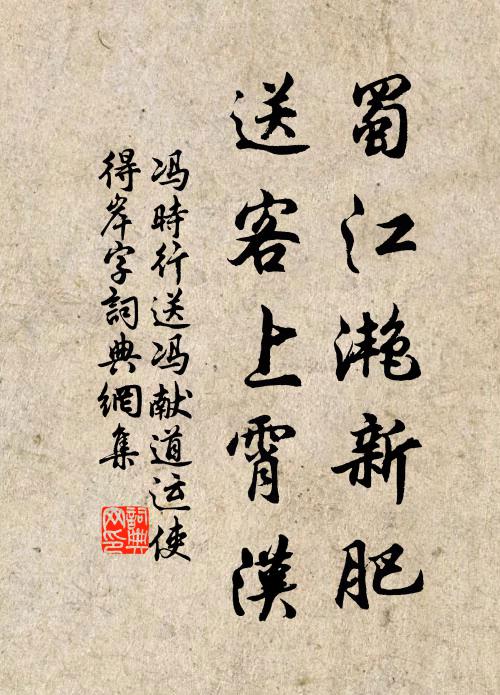 蜀江滟新肥
送客上霄漢
冯時行送冯献道运使
得岸字詞典網集
詞典
网印